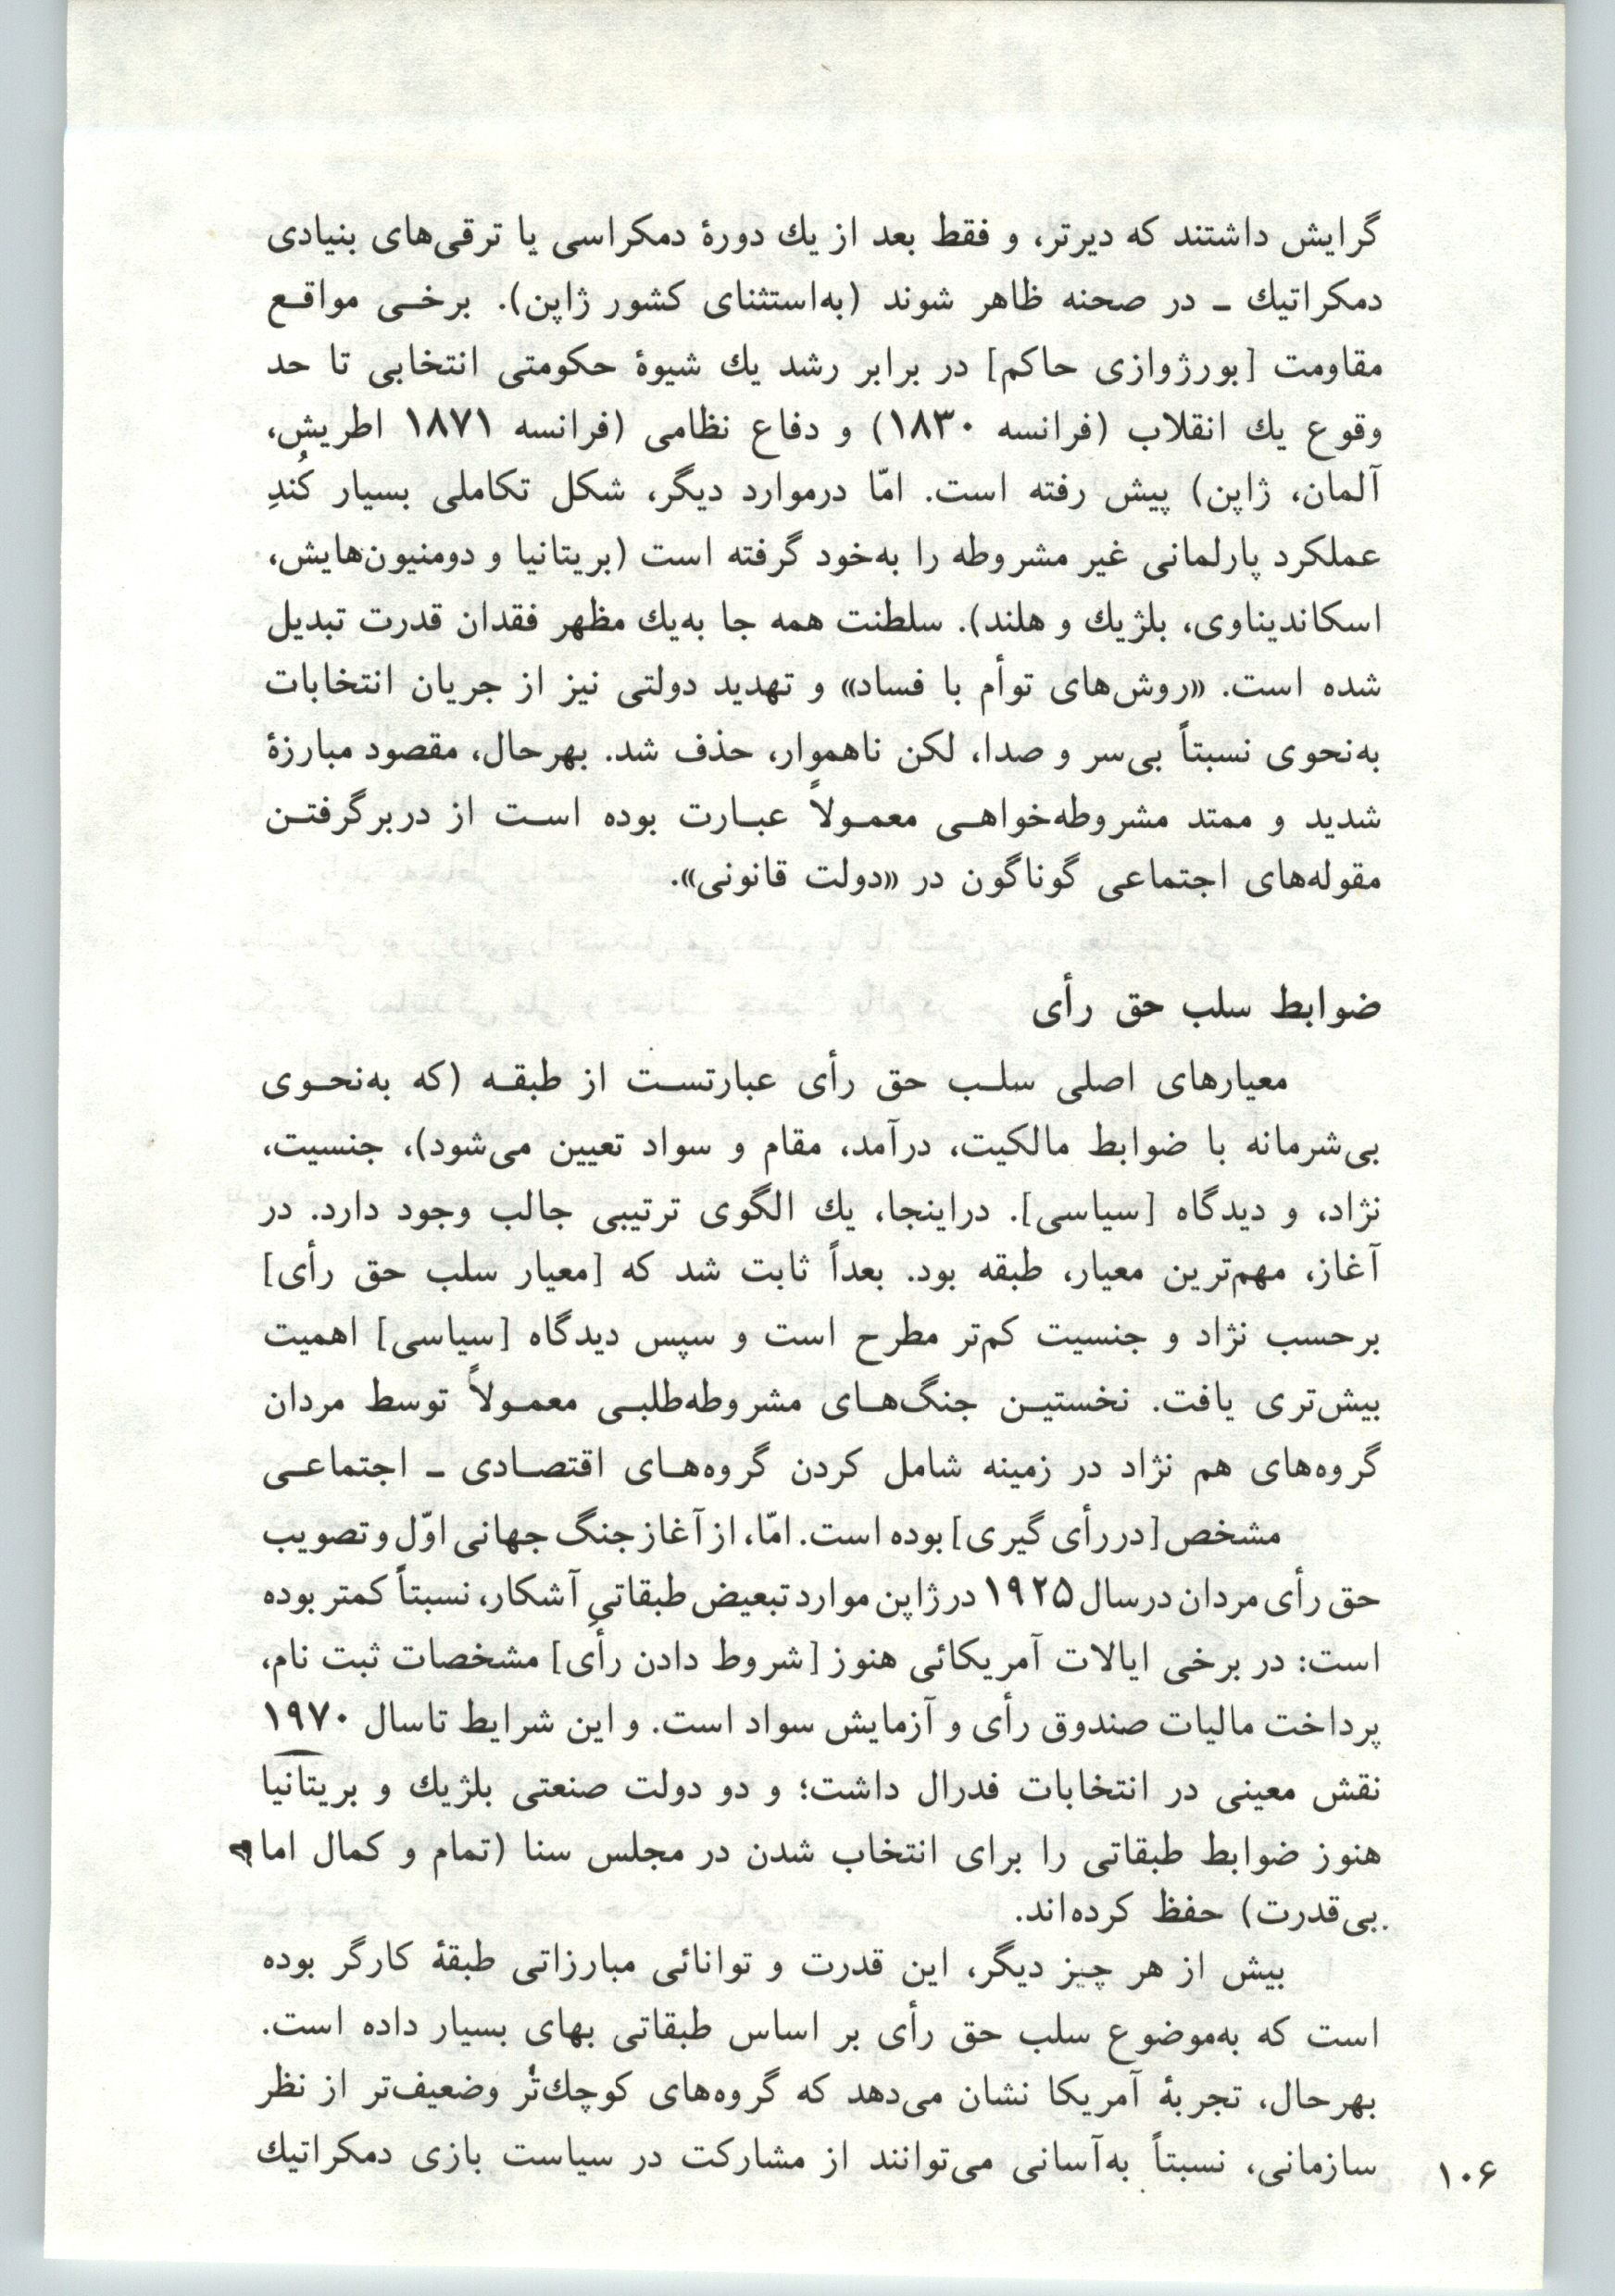 گرایش داشتند که دیرتر، و فقط بعد از یك دورهٔ دمکراسی یا ترقی‌های بنیادی
دمکراتیك ـ در صحنه ظاهر شوند (به‌استثنای کشور ژاپن). برخـی مواقـع
مقاومت [بورژوازی حاکم] در برابر رشد یك شیوهٔ حکومتی انتخابی تا حد
وقوع یك انقلاب (فرانسه ۱۸۳۰) و دفاع نظامی (فرانسه ۱۸۷۱ اطریش،
آلمان، ژاپن) پیش رفته است. امّا درموارد دیگر، شکل تکاملی بسیار کُندِ
عملکرد پارلمانی غیر مشروطه را به‌خود گرفته است (بریتانیا و دومنیون‌هایش،
اسکاندیناوی، بلژیك و هلند). سلطنت همه جا به‌یك مظهر فقدان قدرت تبدیل
شده است. «روش‌های توأم با فساد» و تهدید دولتی نیز از جریان انتخابات
به‌نحوی نسبتاً بی‌سر و صدا، لکن ناهموار، حذف شد. بهرحال، مقصود مبارزهٔ
شدید و ممتد مشروطه‌خواهـی معمـولاً عبـارت بوده اسـت از دربرگرفتـن
مقوله‌های اجتماعی گوناگون در «دولت قانونی».
ضوابط سلب حق رأی
معیارهای اصلی سلـب حق رأی عبارتسـت از طبقـه (که به‌نحـوی
بی‌شرمانه با ضوابط مالکیت، درآمد، مقام و سواد تعیین می‌شود)، جنسیت،
نژاد، و دیدگاه [سیاسی]. دراینجا، یك الگوی ترتیبی جالب وجود دارد. در
آغاز، مهم‌ترین معیار، طبقه بود. بعداً ثابت شد که [معیار سلب حق رأی]
برحسب نژاد و جنسیت کم‌تر مطرح است و سپس دیدگاه [سیاسی] اهمیت
بیش‌تری یافت. نخستیـن جنگ‌هـای مشروطه‌طلبـی معمـولاً توسط مردان
گروه‌های هم نژاد در زمینه شامل کردن گروه‌هـای اقتصـادی ـ اجتماعـی
مشخص [در رأی گیری] بوده است. امّا، از آغاز جنگ جهانی اوّل و تصویب
حق رأی مردان درسال ۱۹۲۵ در ژاپن موارد تبعیض طبقاتیِ آشکار، نسبتاً کمتر بوده
است: در برخی ایالات آمریکائی هنوز [شروط دادن رأی] مشخصات ثبت نام،
پرداخت مالیات صندوق رأی و آزمایش سواد است. و این شرایط تاسال ۱۹۷۰
نقش معینی در انتخابات فدرال داشت؛ و دو دولت صنعتی بلژیك و بریتانیا
هنوز ضوابط طبقاتی را برای انتخاب شدن در مجلس سنا (تمام و کمال اما
بی‌قدرت) حفظ کرده‌اند.
بیش از هر چیز دیگر، این قدرت و توانائی مبارزاتی طبقهٔ کارگر بوده
است که به‌موضوع سلب حق رأی بر اساس طبقاتی بهای بسیار داده است.
بهرحال، تجربهٔ آمریکا نشان می‌دهد که گروه‌های کوچك‌تُر وضعیف‌تر از نظر
سازمانی، نسبتاً به‌آسانی می‌توانند از مشارکت در سیاست بازی دمکراتیك
۱۰۶